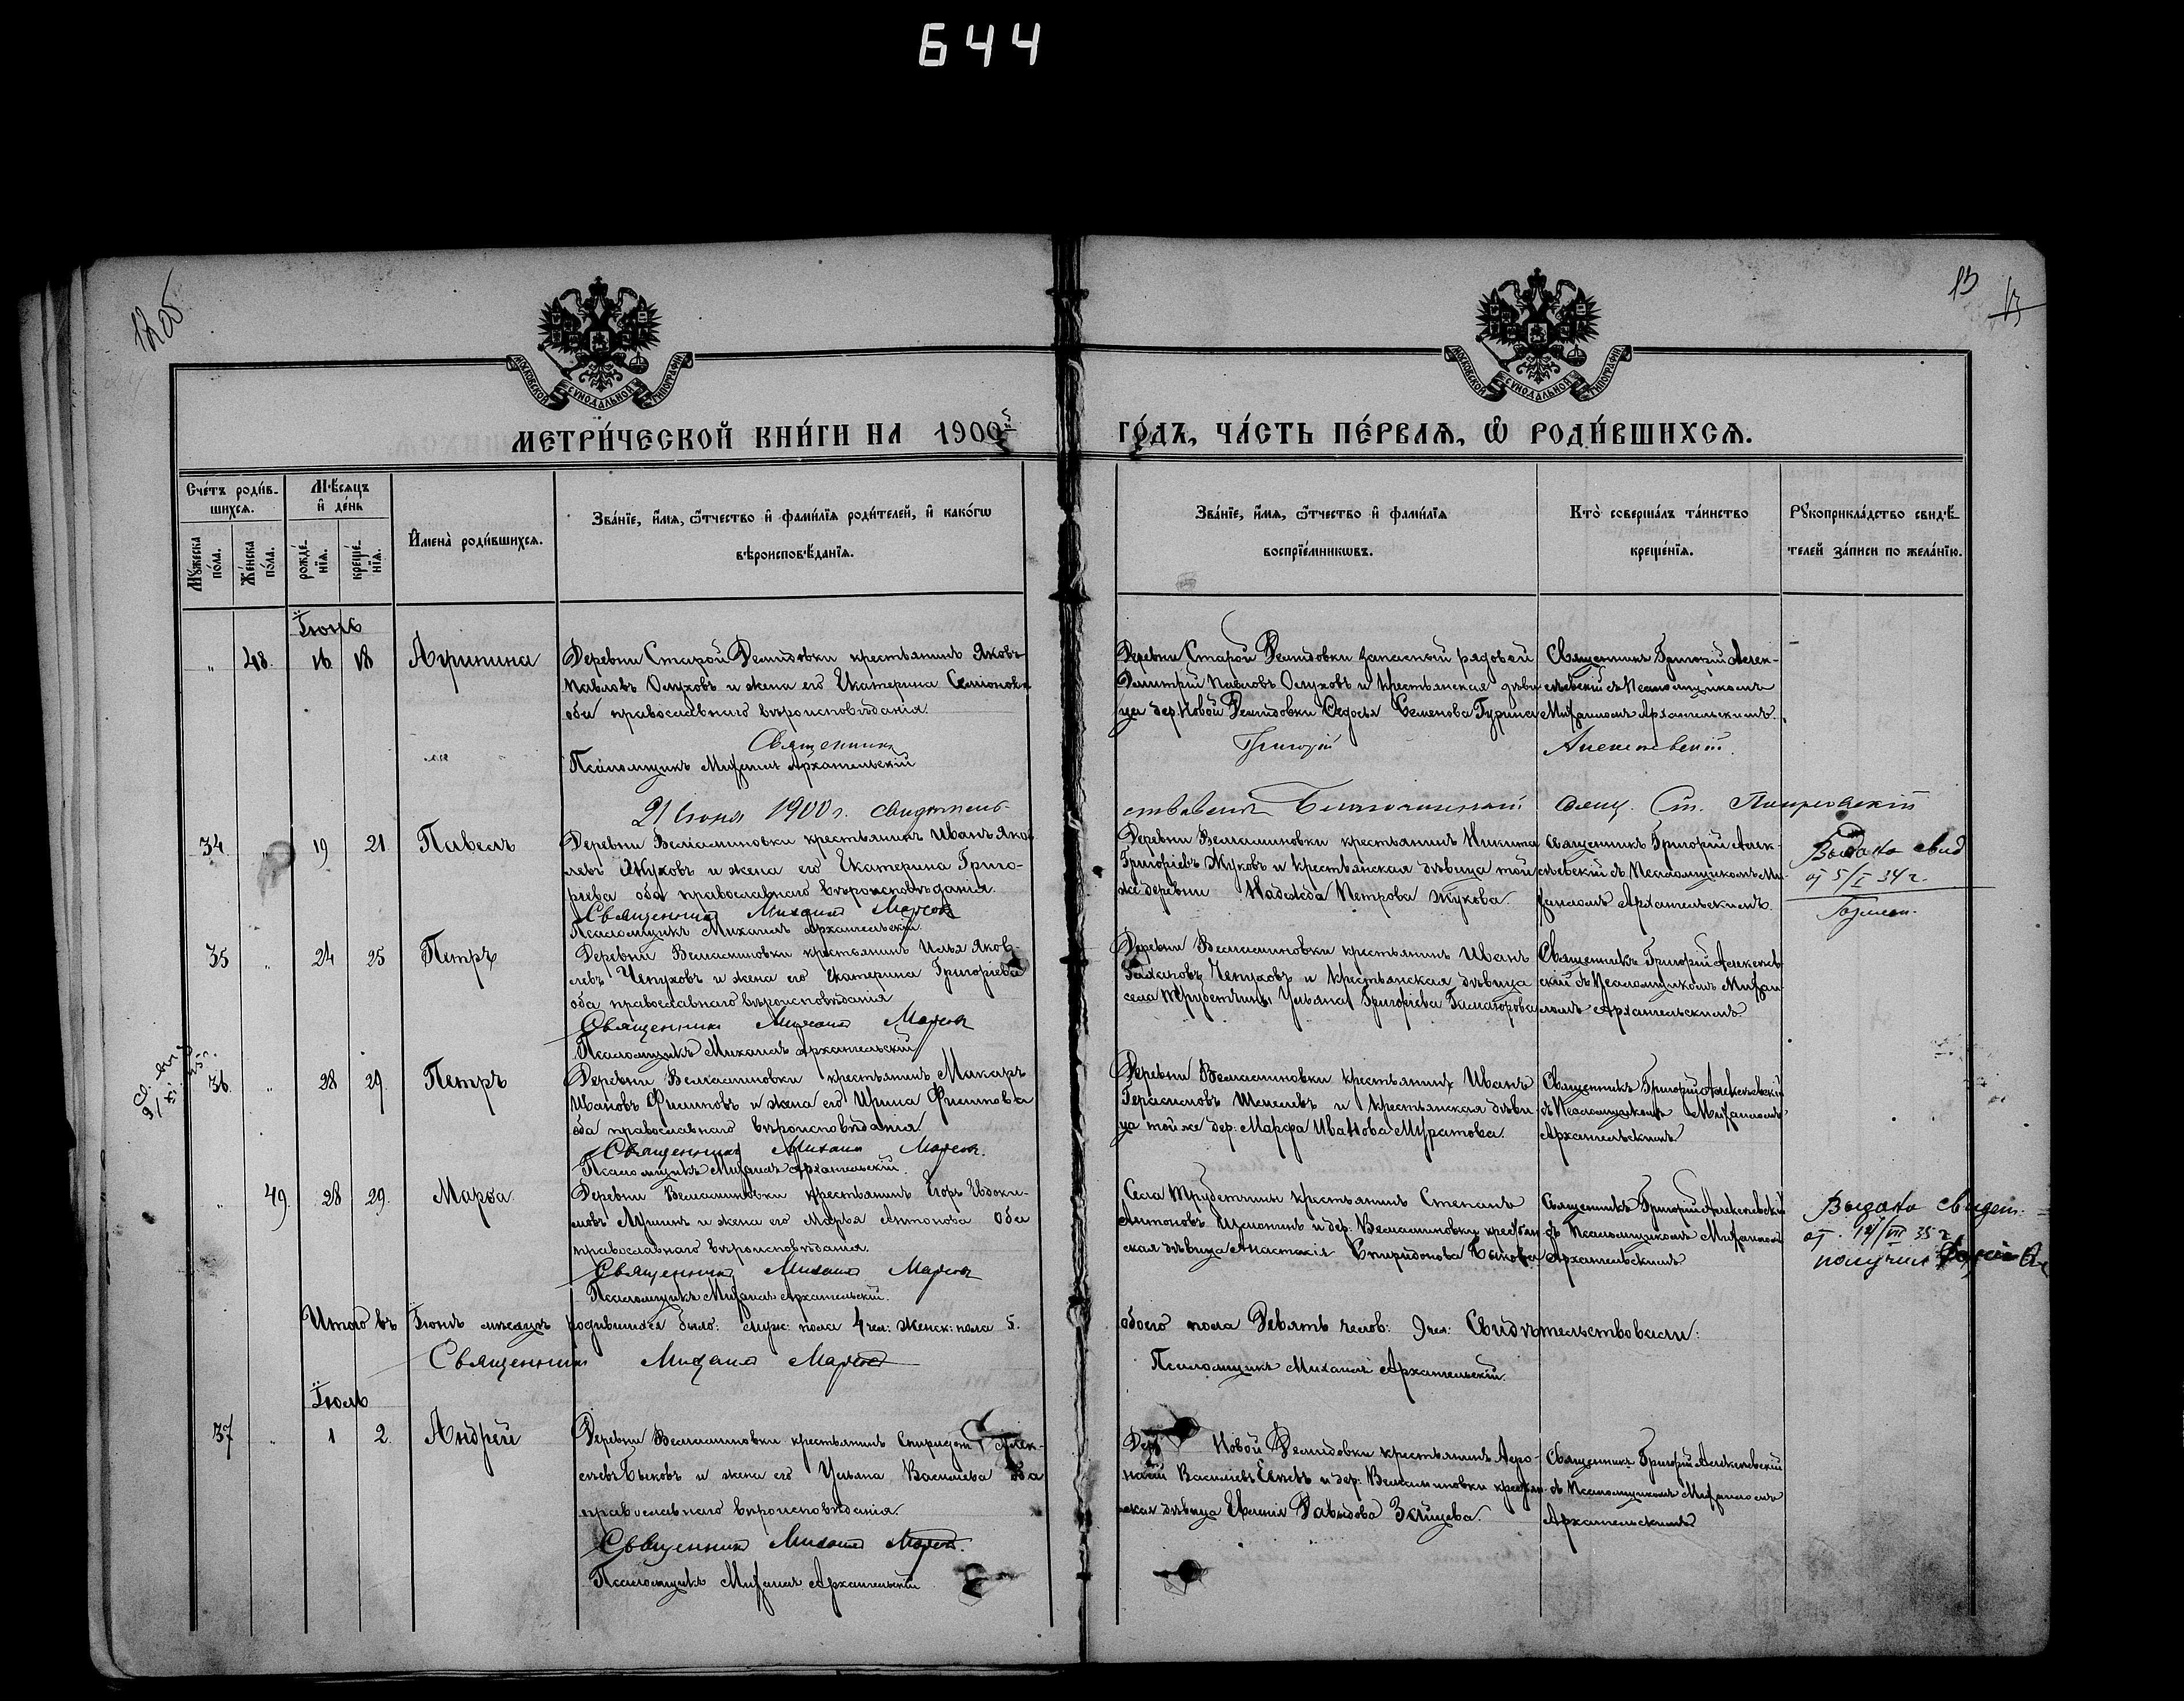 644
12об
13
13
МОСКОВСКОЙ СѴНОДАЛЬНОЙ ТИПОГРАФИИ
МОСКОВСКОЙ СѴНОДАЛЬНОЙ ТИПОГРАФИИ
МЕТРИ́ЧЕСКОЙ КНИ́ГИ НА 1900й ГО́ДЪ, ЧА́СТЬ ПЕ́РВАѦ, Ѡ҆ РОДИ́ВШИХСѦ.
Сче́тъ роди́в-
шихсѧ.
Мꙋ́жеска по́ла.
Же́нска по́ла.
Мѣ́сѧцъ
и҆ де́нь
рожде́-нїѧ.
креще́-нїѧ.
И҆мена̀ роди́вшихсѧ.
Зва́нїе, и҆́мѧ, ѻ҆́тчество и҆ фами́лїѧ роди́телей, и҆ како́гѡ
вѣроисповѣ́данїѧ.
Зва́нїе, и҆́мѧ, ѻ҆́тчество и҆ фами́лїѧ
воспрїе́мникѡвъ.
Кто̀ соверша́лъ та́инство
креще́нїѧ.
Рꙋкоприкла́дство свидѣ́-
телей за́писи по жела́нїю.
Іюнь
" 48. 16 18 Агрипина
Деревни Старой Демидовки крестьянинъ Яковъ
Павловъ Олуховъ и жена его Екатерина Семіонова
оба православнаго вѣроисповѣданія.
Деревни Старой Демидовки запасный рядовой
Димитрій Павловъ Олуховъ и крестьянская дѣви
ца дер. Новой Демидовки Ѳедосья Семенова Гурина
Священникъ Григорій Алек-
сѣевскій съ Псаломщикомъ
Михаиломъ Архангельскимъ.
Священникъ Григорій Алексѣевскій.
Псаломщикъ Михаилъ Архангельскій
21 Іюня 1900 г. свидѣтель-
ствовалъ Благочинный свящ. Ст.
34 " 19 21 Павелъ
Деревни Веліаминовки крестьянинъ Иванъ Яков
левъ Жуковъ и жена его Екатерина Григо-
рьева оба православнаго вѣроисповѣданія.
Священникъ Михаилъ
Псаломщикъ Михаилъ Архангельскій
Деревни Веліаминовки крестьянинъ Никита
Григорьевъ Жуковъ и крестьянская дѣвица той
же деревни Надежда Петрова Жукова.
Священникъ Григорій Алек-
сѣевскій съ Псаломщикомъ Ми-
хаиломъ Архангельскимъ.
Выдано свид
от 5/I 34 г.
35 " 24 25 Петръ
Деревни Веліаминовки крестьянинъ Илья Яков-
левъ Чепуховъ и жена его Екатерина Григоріева
оба православнаго вѣроисповѣданія
Священникъ Михаилъ
Псаломщикъ Михаилъ Архангельскій
Деревни Веліаминовки крестьянинъ Иванъ
Чепуховъ и крестьянская дѣвица
села Трубетчины Ульяна Григорьева
Священникъ Григорій Алексѣев
скій съ Псаломщикомъ Михаи
ломъ Архангельскимъ.
36 " 28 29. Петръ
Деревни Веліаминовки крестьянинъ Макаръ
Ивановъ Филиповъ и жена его Ирина Филипова
оба православнаго вѣроисповѣданія.
Священникъ Михаилъ
Псаломщикъ Михаилъ Архангельскій.
Деревни Веліаминовки крестьянинъ Иванъ
Герасимовъ и крестьянская дѣви-
ца той же дер: Марфа Иванова Муратова.
Священникъ Григорій Алексѣевскій
съ Псаломщикомъ Михаиломъ
Архангельскимъ.
" 49. 28 29. Марѳа
Деревни Веліаминовки крестьянинъ Егоръ Евдоки-
мовъ и жена его Марья Антонова оба
православнаго вѣроисповѣданія.
Священникъ Михаилъ
Псаломщикъ Михаилъ Архангельскій.
Села Трубетчины крестьянинъ Степанъ
Антоновъ и дер: Веліаминовки крестьян
ская дѣвица Анастасія Спиридонова Быкова
Священникъ Григорій Алексѣевскій
съ Псаломщикомъ Михаиломъ
Архангельскимъ
Выдано свидет.
от 35 г.
получил
Итого въ Іюнѣ мѣсяцѣ родившихся было: муж: пола 4 чел: женск: пола 5.
обоего пола Девять челов: 9 чел: Свидѣтельствовали:
Священникъ Михаилъ
Псаломщикъ Михаилъ Архангельскій.
Іюль
37 " 1 2. Андрей
Деревни Веліаминовки крестьянинъ Спиридонъ Алек-
сѣевъ Быковъ и жена его Ульяна Васильева оба
православнаго вѣроисповѣданія.
Священникъ Михаилъ
Псаломщикъ Михаилъ Архангельскій
Дер. Новой Демидовки крестьянинъ Аѳо-
насій Васильевъ и дер: Веліаминовки крестьян-
ская дѣвица Давыдова Зайцева.
Священникъ Григорій Алексѣевскій
съ Псаломщикомъ Михаиломъ
Архангельскимъ